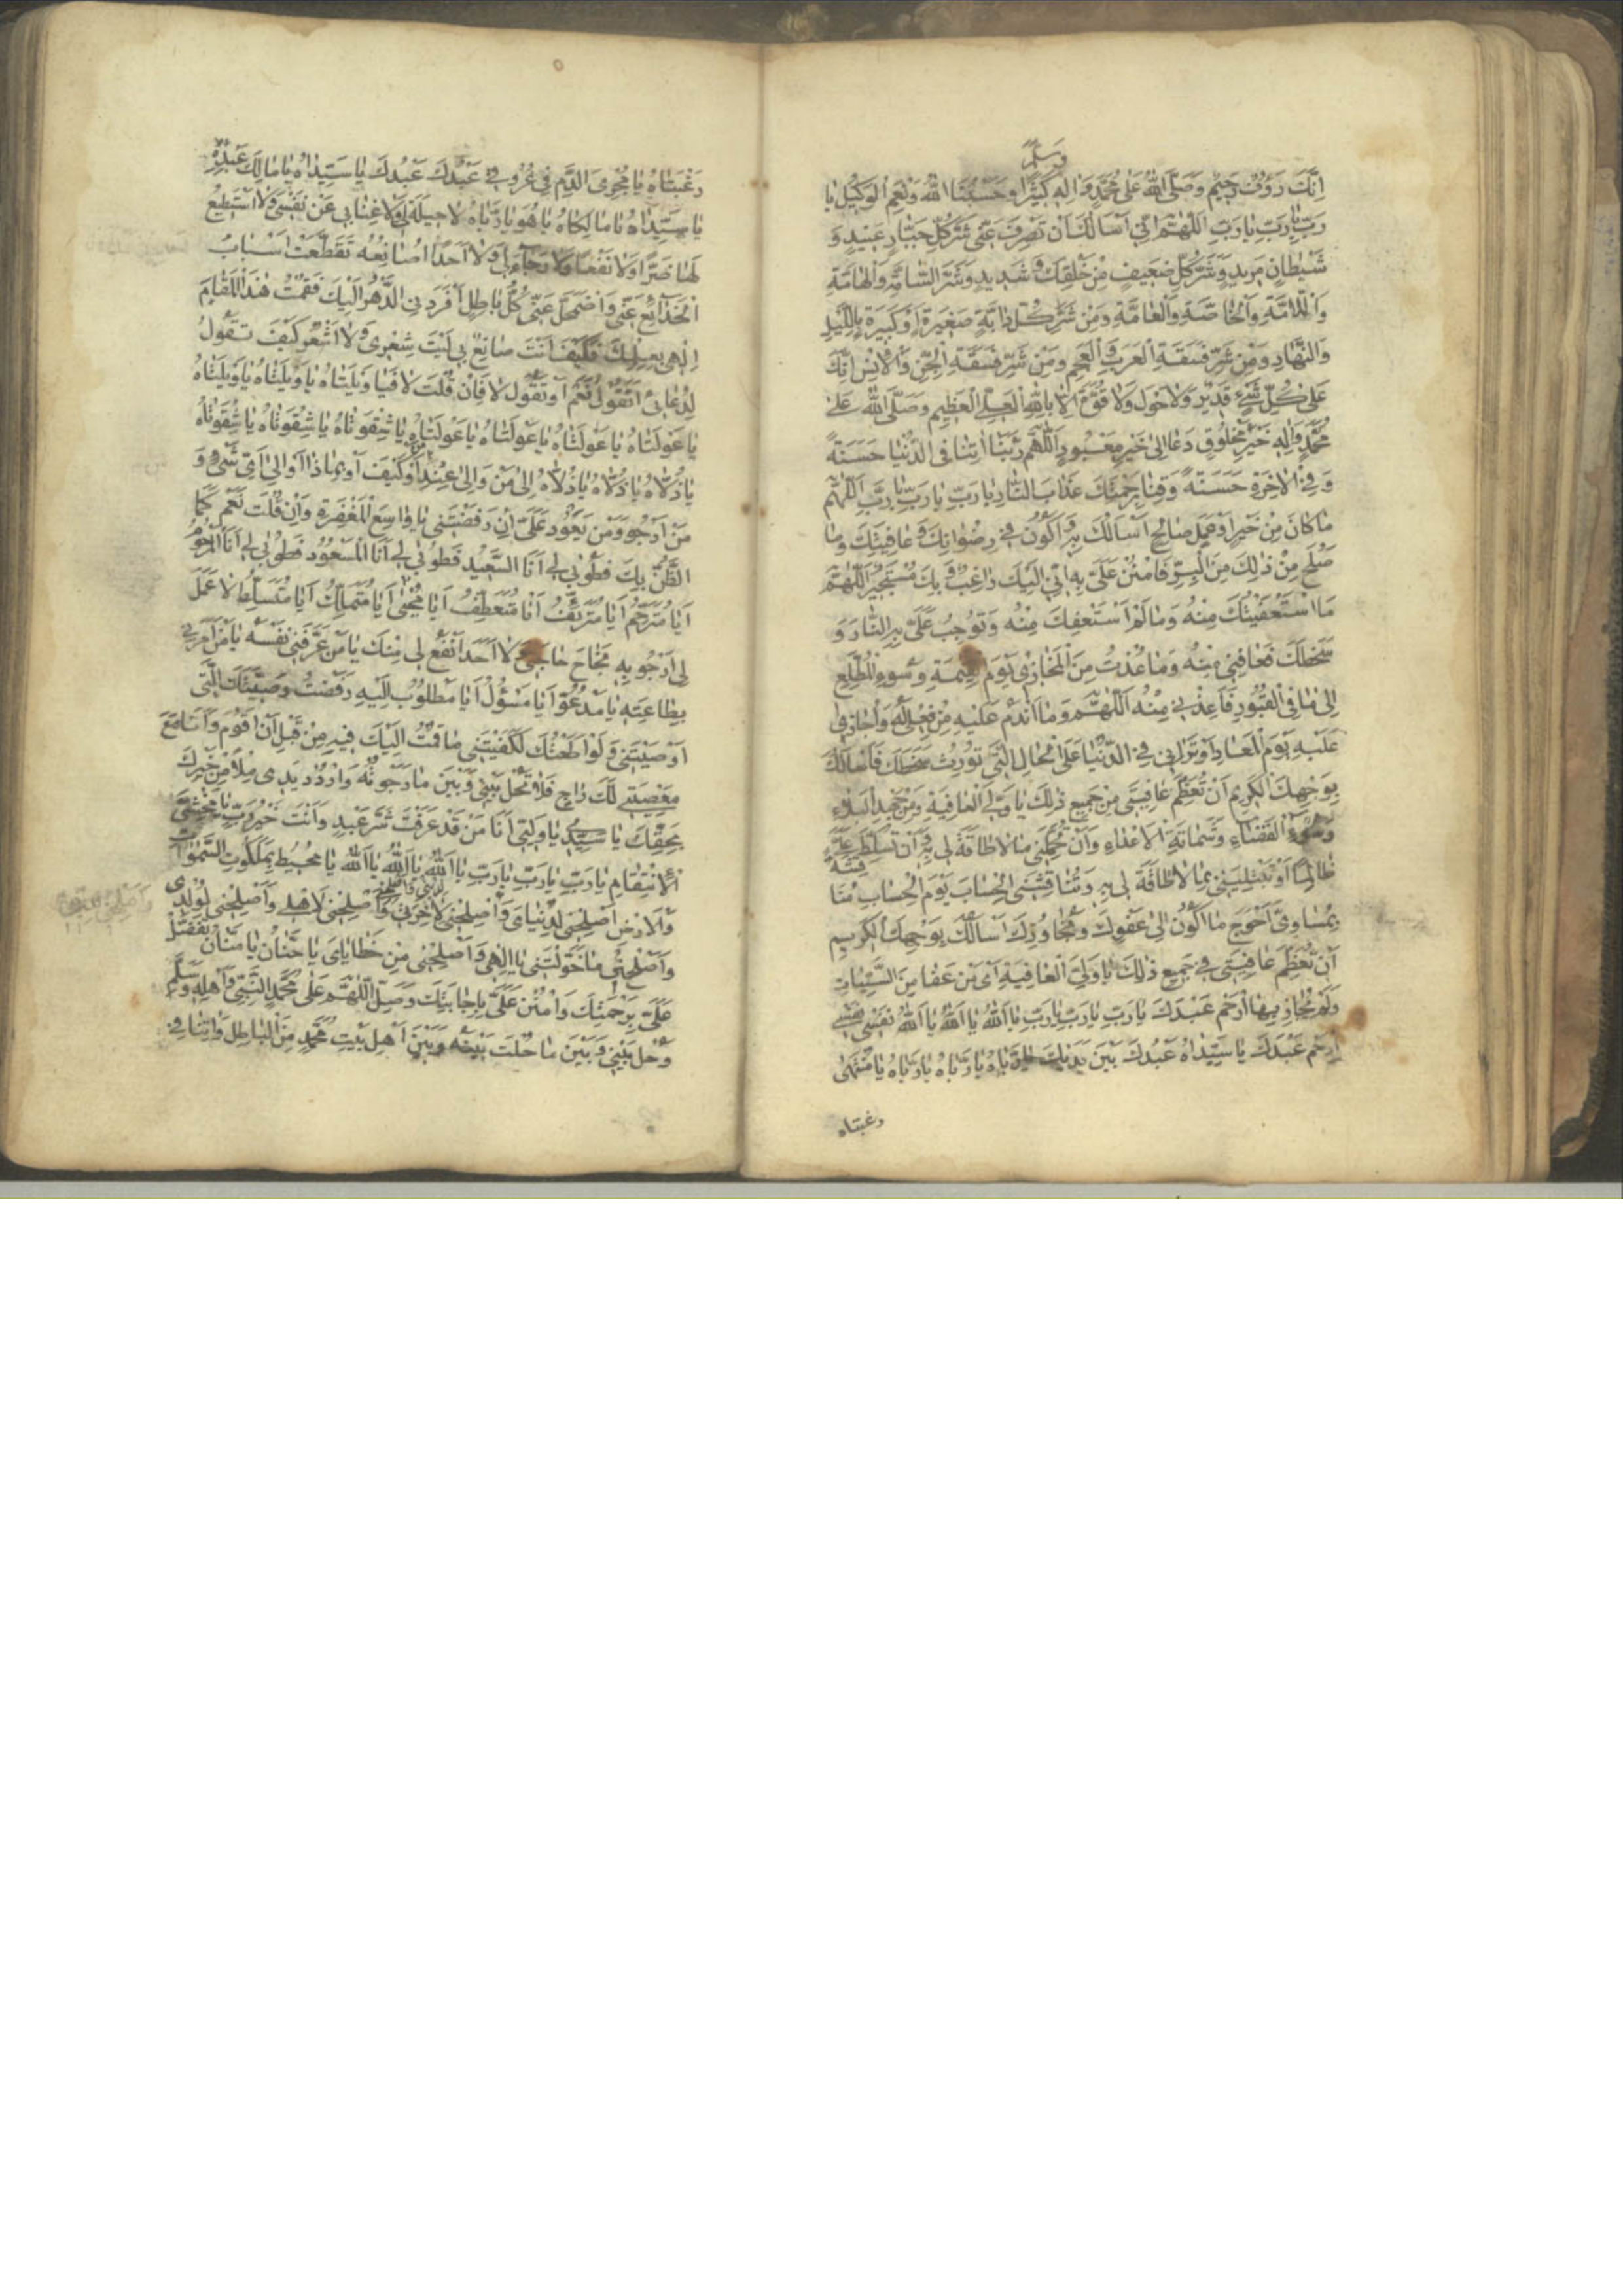 وسلم
اِنَّكَ رَؤُفٌ رَحِيْمٌ وَصَلَّى اللهُ عَلىٰ مُحَمَّدٍ وَاٰلِهِ كَثِيْرًا وَحَسْبُنَا اللهُ وَنِعْمَ الْوَكِيْلُ يٰا
رَبِّ يٰارَبِّ يٰارَبِّ اَللّٰهُمَّ اِنّي اَسْأَلُكَ اَنْ تَصْرِفَ عَنّي شَرَّ كُلِّ جَبّٰارٍ عَنِيْدٍ وَ
شَيْطٰانٍ مَرِيدٍ وَشَرَّ كُلِّ ضَعِيفٍ مِنْ خَلْقِكَ وَ شَدِيدٍ وَشَرَّ السّٰامَّةِ وَالْهٰامَّةِ
وَاللّٰامَّةِ وَالْخٰاصَّةِ وَالْعٰامَّةِ وَمِنْ شَرِّ كُلِّ دٰابَّةٍ صَغِيرَةٍ اَوْ كَبِيرَةٍ بِاللَّيْلِ
وَالنَّهٰارِ وَمِنْ شَرِّ فَسَقَةِ الْعَرَبِ وَ الْعَجَمِ وَمِنْ شَرِّ فَسَقَةِ الْجِنِّ وَالْاِنْسِ اِنَّكَ
عَلىٰ كُلِّ شَيْءٍ قَدِيْرٌ وَلٰا حَوْلَ وَلٰا قُوَّةَ اِلّٰا بِاللهِ الْعَلِيِّ الْعَظِيمِ وَصَلَّى اللهُ عَلىٰ
مُحَمَّدٍ وَاٰلِهِ خَيْرِ مَخْلُوقٍ دَعٰا اِلىٰ خَيْرِ مَعْبُودٍ اَللّٰهُمَّ رَبَّنٰا اٰتِنٰا فِى الدُّنْيٰا حَسَنَةً
وَ فِي الْاٰخِرَةِ حَسَنَةً وَقِنٰا بِرَحْمَتِكَ عَذٰابَ النّٰارِ يٰارَبِّ يٰارَبِّ يٰارَبِّ اَللّٰهُمَّ
مٰا كٰانَ مِنْ خَيْرٍ اَوْ عَمَلٍ صٰالِحٍ اَسْاَلُكَ بِهِ اَكُوْنُ فِي رِضْوٰانِكَ وَ عٰافِيَتِكَ وَمٰا
صَلُحَ مِنْ ذٰلِكَ مِنَ الْبِرِّ فَامْنُنْ عَلَيَّ بِهِ اِنّي اِلَيْكَ رٰاغِبٌ وَ بِكَ مُسْتَجِيْرٌ اَللّٰهُمَّ
مَا اسْتَعْفَيْتُكَ مِنْهُ وَمٰا لَمْ اَسْتَعْفِكَ مِنْهُ وَتُوجِبُ عَلَيَّ بِهِ النّٰارَ وَ
سَخَطَكَ فَعٰافِنِي مِنْهُ وَمٰا عُذْتُ مِنَ الْمَخٰازِي يَوْمَ الْقِيٰمَةِ وَسُوءِ الْمُطَّلَعِ
اِلىٰ مٰا فِى الْقُبُورِ فَاَعِذْنِي مِنْهُ اَللّٰهُمَّ وَمٰا اَنْدَمُ عَلَيْهِ مِنْ فِعْلٍ لَهُ وَاُجٰازىٰ
عَلَيْهِ يَوْمَ الْمَعٰادِ اَوْ تَرٰانِي فِي الدُّنْيٰا عَلَى الْحٰالِ الَّتِي تُورِثُ سَخَطَكَ فَاَسْاَلُكَ
بِوَجْهِكَ الْكَرِيمِ اَنْ تُعَظِّمَ عٰافِيَتِى مِنْ جَمِيعِ ذٰلِكَ يٰا وَلِيَّ الْعٰافِيَةِ وَمِنْ جَهْدِ الْبَلٰاءِ
وَسُوءِ الْقَضٰاءِ وَشَمٰاتَةِ الْاَعْدٰاءِ وَاَنْ تُحَمِّلَنِي مٰا لٰا طٰاقَةَ لِي بِهِ وَاَنْ تُسَلِّطَ عَلَيَّ
ظٰالِمًا اَوْ تَبْتَلِيَنِي بِمٰا لٰا طٰاقَةَ لِي بِهِ وَتُنٰاقِشَنِى الْحِسٰابَ يَوْمَ الْحِسٰابِ مُنٰا قَشَةً
بِمَسٰاوِئى اَحْوَجُ مٰا اَكُوْنُ اِلىٰ عَفْوِكَ وَتَجٰاوُزِكَ اَسْاَلُكَ بِوَجْهِكَ الْكَرِيمِ
اَنْ تُعَظِّمَ عٰافِيَتِى فِي جَمِيعِ ذٰلِكَ يٰا وَلِيَّ الْعٰافِيَةِ اَىْ مَنْ عَفٰا مِنَ السَّيِّئٰاتِ
وَلَمْ يُجٰازِ بِهَا ارْحَمْ عَبْدَكَ يٰارَبِّ يٰارَبِّ يٰارَبِّ يٰا اَللهُ يٰا اَللهُ يٰا اَللهُ نَفْسِي نَفْسِي
اِرْحَمْ عَبْدَكَ يٰا سَيِّدٰاهُ عَبْدُكَ بَيْنَ يَدَيْكَ يٰارَبّٰاهُ يٰارَبّٰاهُ يٰارَبّٰاهُ يٰا مُنْتَهىٰ
رغبتاه
رَغْبَتٰاهُ يٰا مُجْرِىَ الدَّمِ فِي عُرُوقِي عَبْدُكَ عَبْدُكَ يٰا سَيِّدٰاهُ يٰا مٰالِكَ عَبْدِهِ
يٰا سَيِّدٰاهُ يٰا مٰالِكٰاهُ يٰا هُوَ يٰا رَبّٰاهُ لٰا حِيلَةَ لِي وَلٰا غِنٰا بِي عَنْ نَفْسِي وَلٰا اَسْتَطِيعُ
لَهٰا ضَرًّا وَلٰا نَفْعًا وَلٰا رَجٰاءَ لِي وَلٰا اَحَدًا اُصٰانِعُهُ تَقَطَّعَتْ اَسْبٰابُ
الْخَدٰائِعِ عَنِّي وَاضْمَحَلَّ عَنِّي كُلُّ بٰاطِلٍ اَفْرَدَنِي الدَّهْرُ اِلَيْكَ فَقُمْتُ هٰذَا الْمَقٰامَ
اِلٰهِي بِعِلْمِكَ فَكَيْفَ اَنْتَ صٰانِعٌ بِي لَيْتَ شِعْرِي وَلٰا اَشْعُرُ كَيْفَ تَقُولُ
لِدُعٰائِي اَتَقُولُ نَعَمْ اَوْ تَقُولُ لٰا فَاِنْ قُلْتَ لٰا فَيٰا وَيْلَتٰاهُ يٰا وَيْلَتٰاهُ يٰا وَيْلَتٰاهُ
يٰا عَوْلَتٰاهُ يٰا عَوْلَتٰاهُ يٰا عَوْلَتٰاهُ يٰا عَوْلَتٰاهُ يٰا شِقْوَتٰاهُ يٰا شِقْوَتٰاهُ يٰا شِقْوَتٰاهُ
يٰا ذُلّٰاهُ يٰا ذُلّٰاهُ يٰا ذُلّٰاهُ اِلىٰ مَنْ وَاِلىٰ عِنْدِ مَنْ اَوْ كَيْفَ اَوْ بِمٰا ذٰا اَوْ اِلىٰ اَىِّ شَىْءٍ وَ
مَنْ اَرْجُو وَمَنْ يَعُودُ عَلَيَّ اِنْ رَفَضْتَنِي يٰا وٰاسِعَ الْمَغْفِرَةِ وَاِنْ قُلْتَ نَعَمْ كَمَا
الظَّنُّ بِكَ فَطُوبىٰ لِي اَنَا السَّعِيْدُ فَطُوبىٰ لِي اَنَا الْمَسْعُودُ فَطُوبىٰ لِي اَنَا الْمَرْحُومُ
اَيٰا مُتَرَحِّمُ اَيٰا مُتَرَئِّفُ اَيٰا مُتَعَطِّفُ اَيٰا مُحْيِي اَيٰا مُتَمَلِّكُ اَيٰا مُتَسَلِّطُ لٰا عَمَلَ
لِي اَرْجُو بِهِ نَجٰاحَ حٰاجَتِي وَلٰا اَحَدَ اَنْفَعُ لِي مِنْكَ يٰا مَنْ عَرَّفَنِي نَفْسَهُ يٰا مَنْ اَمَرَنِي
بِطٰاعَتِهِ يٰا مَدْعُوُّ اَيٰا مَسْؤُلُ اَيٰا مَطْلُوْبُ اِلَيْهِ رَفَضْتُ وَصِيَّتَكَ الَّتِى
اَوْصَيْتَنِي وَلَوْ اَطَعْتُكَ لَكَفَيْتَنِي مٰا قُمْتُ اِلَيْكَ فِيهِ مِنْ قَبْلِ اَنْ اَقُومَ وَاَنَا مَعَ
مَعْصِيَتِي لَكَ رٰاجٍ فَلٰا تَحُلْ بَيْنِي وَبَيْنَ مٰا رَجَوْتُهُ وَارْدُدْ يَدِى مِلْاً مِنْ خَيْرِكَ
بِحَقِّكَ يٰا سَيِّدِي يٰا وَلِيّي اَنَا مَنْ قَدْ عَرَفْتَ شَرُّ عَبْدٍ وَاَنْتَ خَيْرُ رَبٍّ يٰا مَخْشِيَّ
الْاِنْتِقٰامِ يٰارَبِّ يٰارَبِّ يٰارَبِّ يٰا اَللهُ يٰا اَللهُ يٰا اَللهُ يٰا مُحِيطُ بِمَلَكُوتِ السَّمٰوٰاتِ
وَالْاَرْضِ اَصْلِحْنِي لِدُنْيٰاىَ وَاَصْلِحْنِي لِاٰخِرَتِي وَاَصْلِحْنِي لِاَهْلِي وَاَصْلِحْنِي لِوُلْدِى
وَاَصْلِحْ لِي مٰا خَوَّلْتَنِي يٰا اِلٰهِي وَاَصْلِحْنِي مِنْ خَطٰايٰاىَ يٰا حَنّٰانُ يٰا مَنّٰانُ تَفَضَّلْ
عَلَيَّ بِرَحْمَتِكَ وَامْنُنْ عَلَيَّ بِاِجٰابَتِكَ وَصَلِّ اللّٰهُمَّ عَلىٰ مُحَمَّدٍ النَّبِيِّ وَاَهْلِهِ وَسَلَّمَ
وَحُلْ بَيْنِي وَبَيْنَ مٰا حُلْتَ بَيْنَهُ وَبَيْنَ اَهْلِ بَيْتِ مُحَمَّدٍ مِنَ الْبٰاطِلِ وَاٰتِنٰا فِي